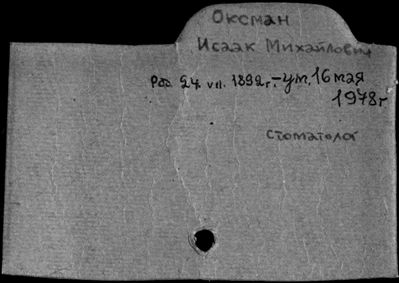 Оксман
Исаак Михайлович
Род. 24. VII. 1892 г. - ум. 16 мая
1978 г
стоматолог